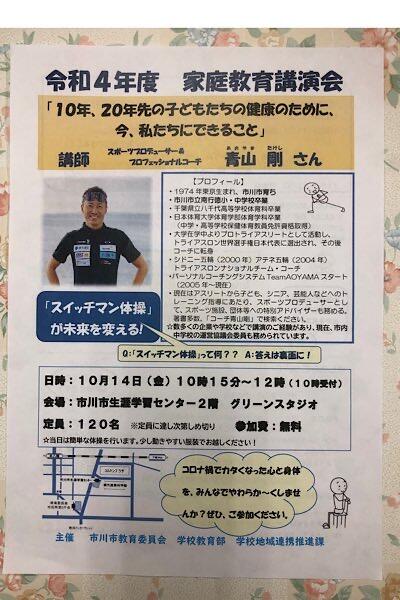 令和4年度　家庭教育講演会
「10年、20年先の子どもたちの健康のために、
今、私たちにできること」
講師　スポーツプロデューサー&
プロフェッショナルコーチ
あおやま　たけし
青山　剛 さん
【プロフィール】
・1974年東京生まれ、市川市育ち
・市川市立南行徳小・中学校卒業
・千葉県立八千代高等学校体育科卒業
・日本体育大学体育学部体育学科卒業
（中学・高等学校保健体育教員免許資格取得）
・大学在学中よりプロトライアスリートとして活動し、
トライアスロン世界選手権日本代表に選出され、その後
コーチに転身
・シドニー五輪（2000年）アテネ五輪（2004年）
トライアスロンナショナルチーム・コーチ
・パーソナルコーチングシステム TeamAOYAMA スタート
（2005年～現在）
・現在はアスリートから子ども、シニア、芸能人などへのト
レーニング指導にあたり、スポーツプロデューサーとし
て、スポーツ施設、団体等への特別アドバイザーも務める。
著書多数、「コーチ青山剛」で検索ください。
☆数多くの企業や学校などで講演のご経験があり、現在、市内
中学校の運営協議会委員も務められています。
「スイッチマン体操」
が未来を変える!
Q:「スイッチマン体操」って何??　A:答えは裏面に!
日時：10月14日（金）10時15分～12時（10時受付）
会場：市川市生涯学習センター2階　グリーンスタジオ
定員：120名　※定員に達し次第しめ切り　参加費：無料
☆当日は簡単な体操を行います。少し動きやすい服装でお越しください!
コロナ禍でカタくなった心と身体
を、みんなでやわらか～くしませ
んか？ぜひ、ご参加ください。
主催　市川市教育委員会　学校教育部　学校地域連携推進課